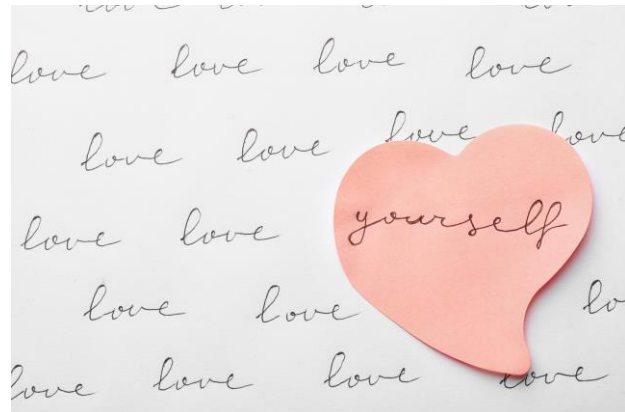 love love love love
love love love love
love love yourself
love love lo
love love love love